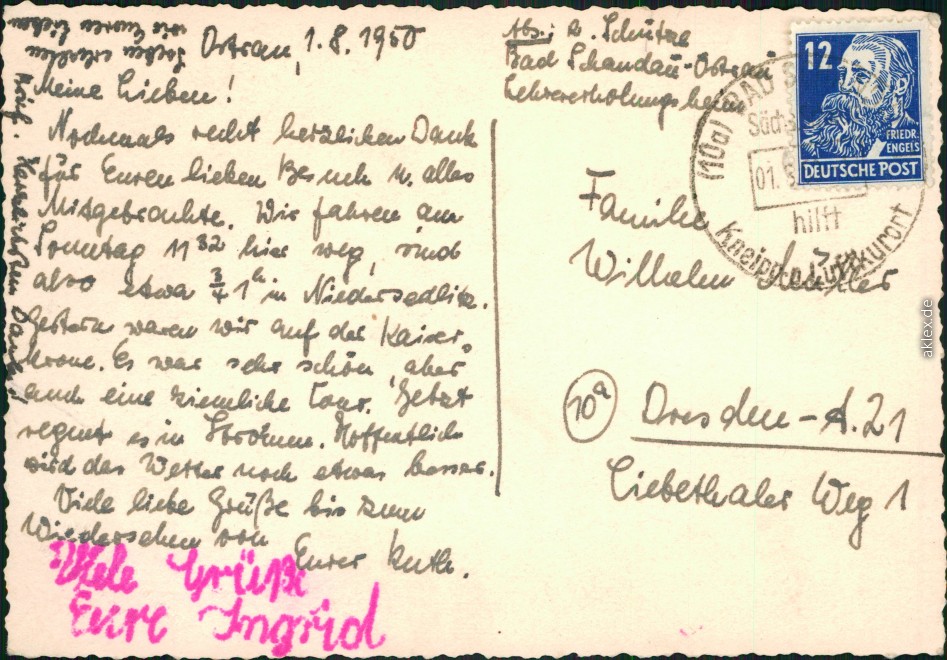 Ostrau, 1.8.1950
Meine Lieben!
Nochmals recht herzlichen Dank
für Euren lieben Besuch u. alles
Mitgebrachte. Wir fahren am
Sonntag 11 32 hier weg, sind
also etwa 3/4 1 h in Niedersedlitz.
Gestern waren wir auf der Kaiser-
krone. Es war sehr schön, aber
auch eine ziemliche Tour. Jetzt
regnet es in Strömen. Hoffentlich
wird das Wetter noch etwas besser.
Viele liebe Grüße bis zum
Wiedersehen von
Eurer Ruth.
Viele Grüße
Eure Ingrid
Soeben erhalten
wir Euren lieben
Brief. Herzlichen Dank!
Abs.: R. Schütze
Bad Schandau-Ostrau
Lehrererholungsheim
12
FRIEDR.
ENGELS
DEUTSCHE POST
(10a) BAD
01.
hilft
Kneipp u. Luftkurort
Familie
Wilhelm
10a
Dresden-A.21
Liebethaler Weg 1
aklex.de